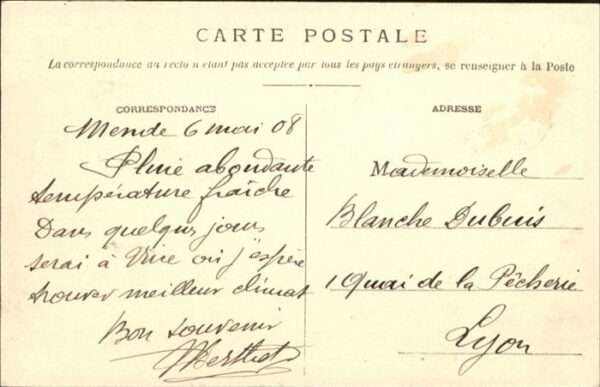 CARTE POSTALE
La correspondance au recto n'étant pas acceptée par tous les pays étrangers, se renseigner à la Poste
CORRESPONDANCE
Mende 6 mai 08
Pluie abondante
température fraîche
Dans quelques jours
serai à Nice où j'espère
trouver meilleur climat
Bon souvenir
ADRESSE
Mademoiselle
Blanche Dubuis
1 Quai de la Pêcherie
Lyon